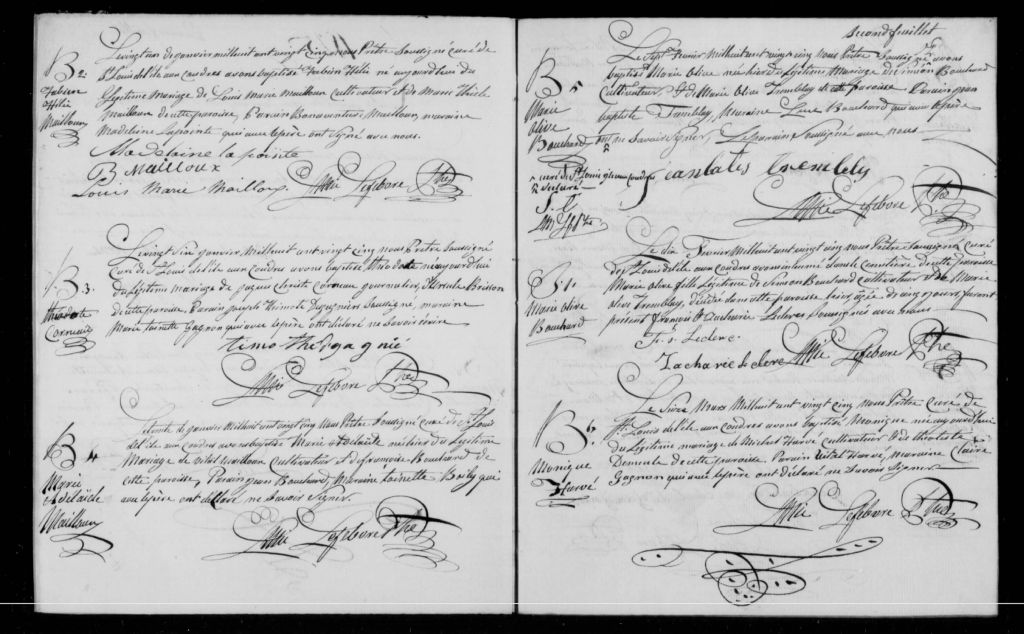 B 2.
Fabien
Hélie
Mailloux
Le vingt un de janvier mil huit cent vingt cinq nous Prêtre Soussigné curé de
St Louis de l'ile aux coudres avons baptisé Fabien Hélie né aujourd'hui du
légitime mariage de Louis Marie Mailloux cultivateur & de Marie
Mailloux de cette paroisse, Parain Bonaventure Mailloux, maraine
Madeleine Lapointe qui avec le père ont signé avec nous.
Madelaine la pointe
B Mailloux
Louis Marie Mailloux. Lefebvre Ptre
B. 3.
théodote
Corneau
Le vingt six janvier Mil huit cent vingt cinq nous Prêtre Soussigné
curé de St Louis de l'ile aux coudres avons baptisé théodote né aujourd'hui
du légitime mariage de Corneau & Brisson
de cette paroisse, Parain joseph thimoté Soussigné, maraine
Marie Gagnon qui avec le père ont déclaré ne savoir écrire
timothé dgagnié
Lefebvre Ptre
B 4
Marie
Adelaïde
Mailloux
Le trente de janvier mil huit cent vingt cinq nous Prêtre Soussigné curé de St Louis
de l'ile aux coudres avons baptisé Marie Adelaïde née hier du légitime
Mariage de vital Mailloux cultivateur & de françoise Bouchard de
cette paroisse, Parain jean Bouchard, Maraine Boily qui
avec le père ont déclaré ne savoir signer.
Lefebvre Ptre
Second feuillet
B 5
Marie
olive
Bouchard
Le sept Fevrier Mil huit cent vingt cinq nous Prêtre Soussigné avons
baptisé Marie olive née hier du légitime Mariage de Simon Bouchard
cultivateur & de Marie olive Tremblay de cette paroisse Parain jean
baptiste Tremblay, Maraine Luce Bouchard qui avec le père
ont ne savoir signer, Le parain Soussigné avec nous
curé de St Louis
déclaré
jeanbatis trembley
Lefebvre Ptre
S. 1.
Marie olive
Bouchard
Le dix Fevrier Mil huit cent vingt cinq nous Prêtre Soussigné curé
de St Louis de l'ile aux coudres avons inhumé dans le cimetière de cette paroisse
Marie olive fille légitime de Simon Bouchard cultivateur & de Marie
olive Tremblay, décédée dans cette paroisse hier, agée de cinq jours, furent
présent françois & Zacharie Leclerc Soussignés avec nous
Fr. s. Leclerc.
Zacharie leclerc Lefebvre Ptre
B 6.
Monique
Harvé
Le Mars Mil huit cent vingt cinq nous Prêtre curé de
St Louis de l'ile aux coudres avons baptisé Monique née aujourd'hui
du légitime mariage de Michel Harvé cultivateur & de théotiste
Demeule de cette paroisse. Parain vital Harvé, Maraine Claire
Gagnon qui avec le père ont déclaré ne savoir signer
Lefebvre Ptre